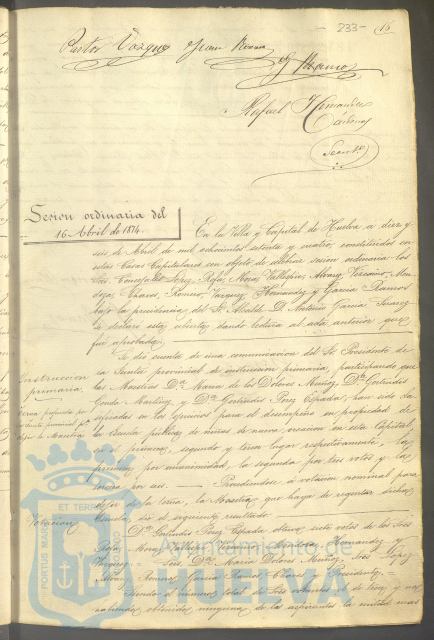 -233- 16
Pastor Vazquez Juan Romero
J. Ramos
Rafael Hernandez
Cardenas
Secret.º
Sesion ordinaria del
16 Abril de 1874.
En la Villa y Capital de Huelva a diez y
seis de Abril de mil ochocientos setenta y cuatro, constituidos en
estas Casas Capitulares con objeto de celebrar sesion ordinaria los
Sres. Concejales Lopez, Rofa, Mora, Vallejos, Alvarez, Vizcaino, Men-
doza, Chaves, Romero, Vazquez, Hernandez y Garcia Ramos
bajo la presidencia del Sr. Alcalde D. Antonio Garcia
se declaró esta abierta dando lectura al acta anterior que
fué aprobada.
Instruccion
primaria.
Se dió cuenta de una comunicacion del Sr. Presidente de
la Junta provincial de instruccion primaria, participando que
las Maestras Dª Maria de los Dolores Muñoz, Dª Gertrudis
Conde Martinez y Dª Gertrudis Perez Espada, han sido
en los ejercicios para el desempeño en propiedad de
la Escuela publica de niñas de nueva creacion en esta Capital,
en el primero, segundo y tercer lugar respectivamente, la
primera por unanimidad, la segunda por tres votos y la
tercera por Procediendose a votacion nominal para
de la terna, la Maestra que haya de regentar dicha
Votacion
Escuela, dió el siguiente resultado.
Dª Gertrudis Perez Espada obtuvo siete votos de los Sres.
Rofa, Mora, Vallejos, Vizcaino, Mendoza, Hernandez y
Vazquez. Seis, Dª Maria Dolores Muñoz, Sres. Lopez
Alvarez, Romero, Garcia Ramos, Chaves y Presidente.
Siendo el número total de Sres. votantes el de trece y no
habiendo obtenido ninguna de las aspirantes la mitad mas
PORTUS MARIS ET TERRAE
Ayuntamiento de
HUELVA